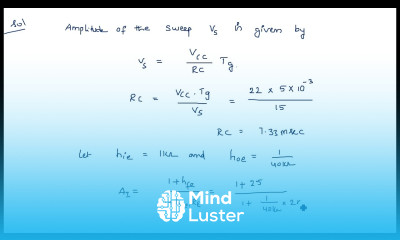 Sol
Amplitude of the sweep Vs is given by
Vs = Vcc / RC Tg
RC = Vcc . Tg / Vs = 22 x 5 x 10^-3 / 15
RC = 7.33 msec
Let hie = 1kΩ and hoe = 1 / 40kΩ
AI = 1 + hfe = 1 + 25 / 1 + 1 / 40kΩ x
Mind
Luster